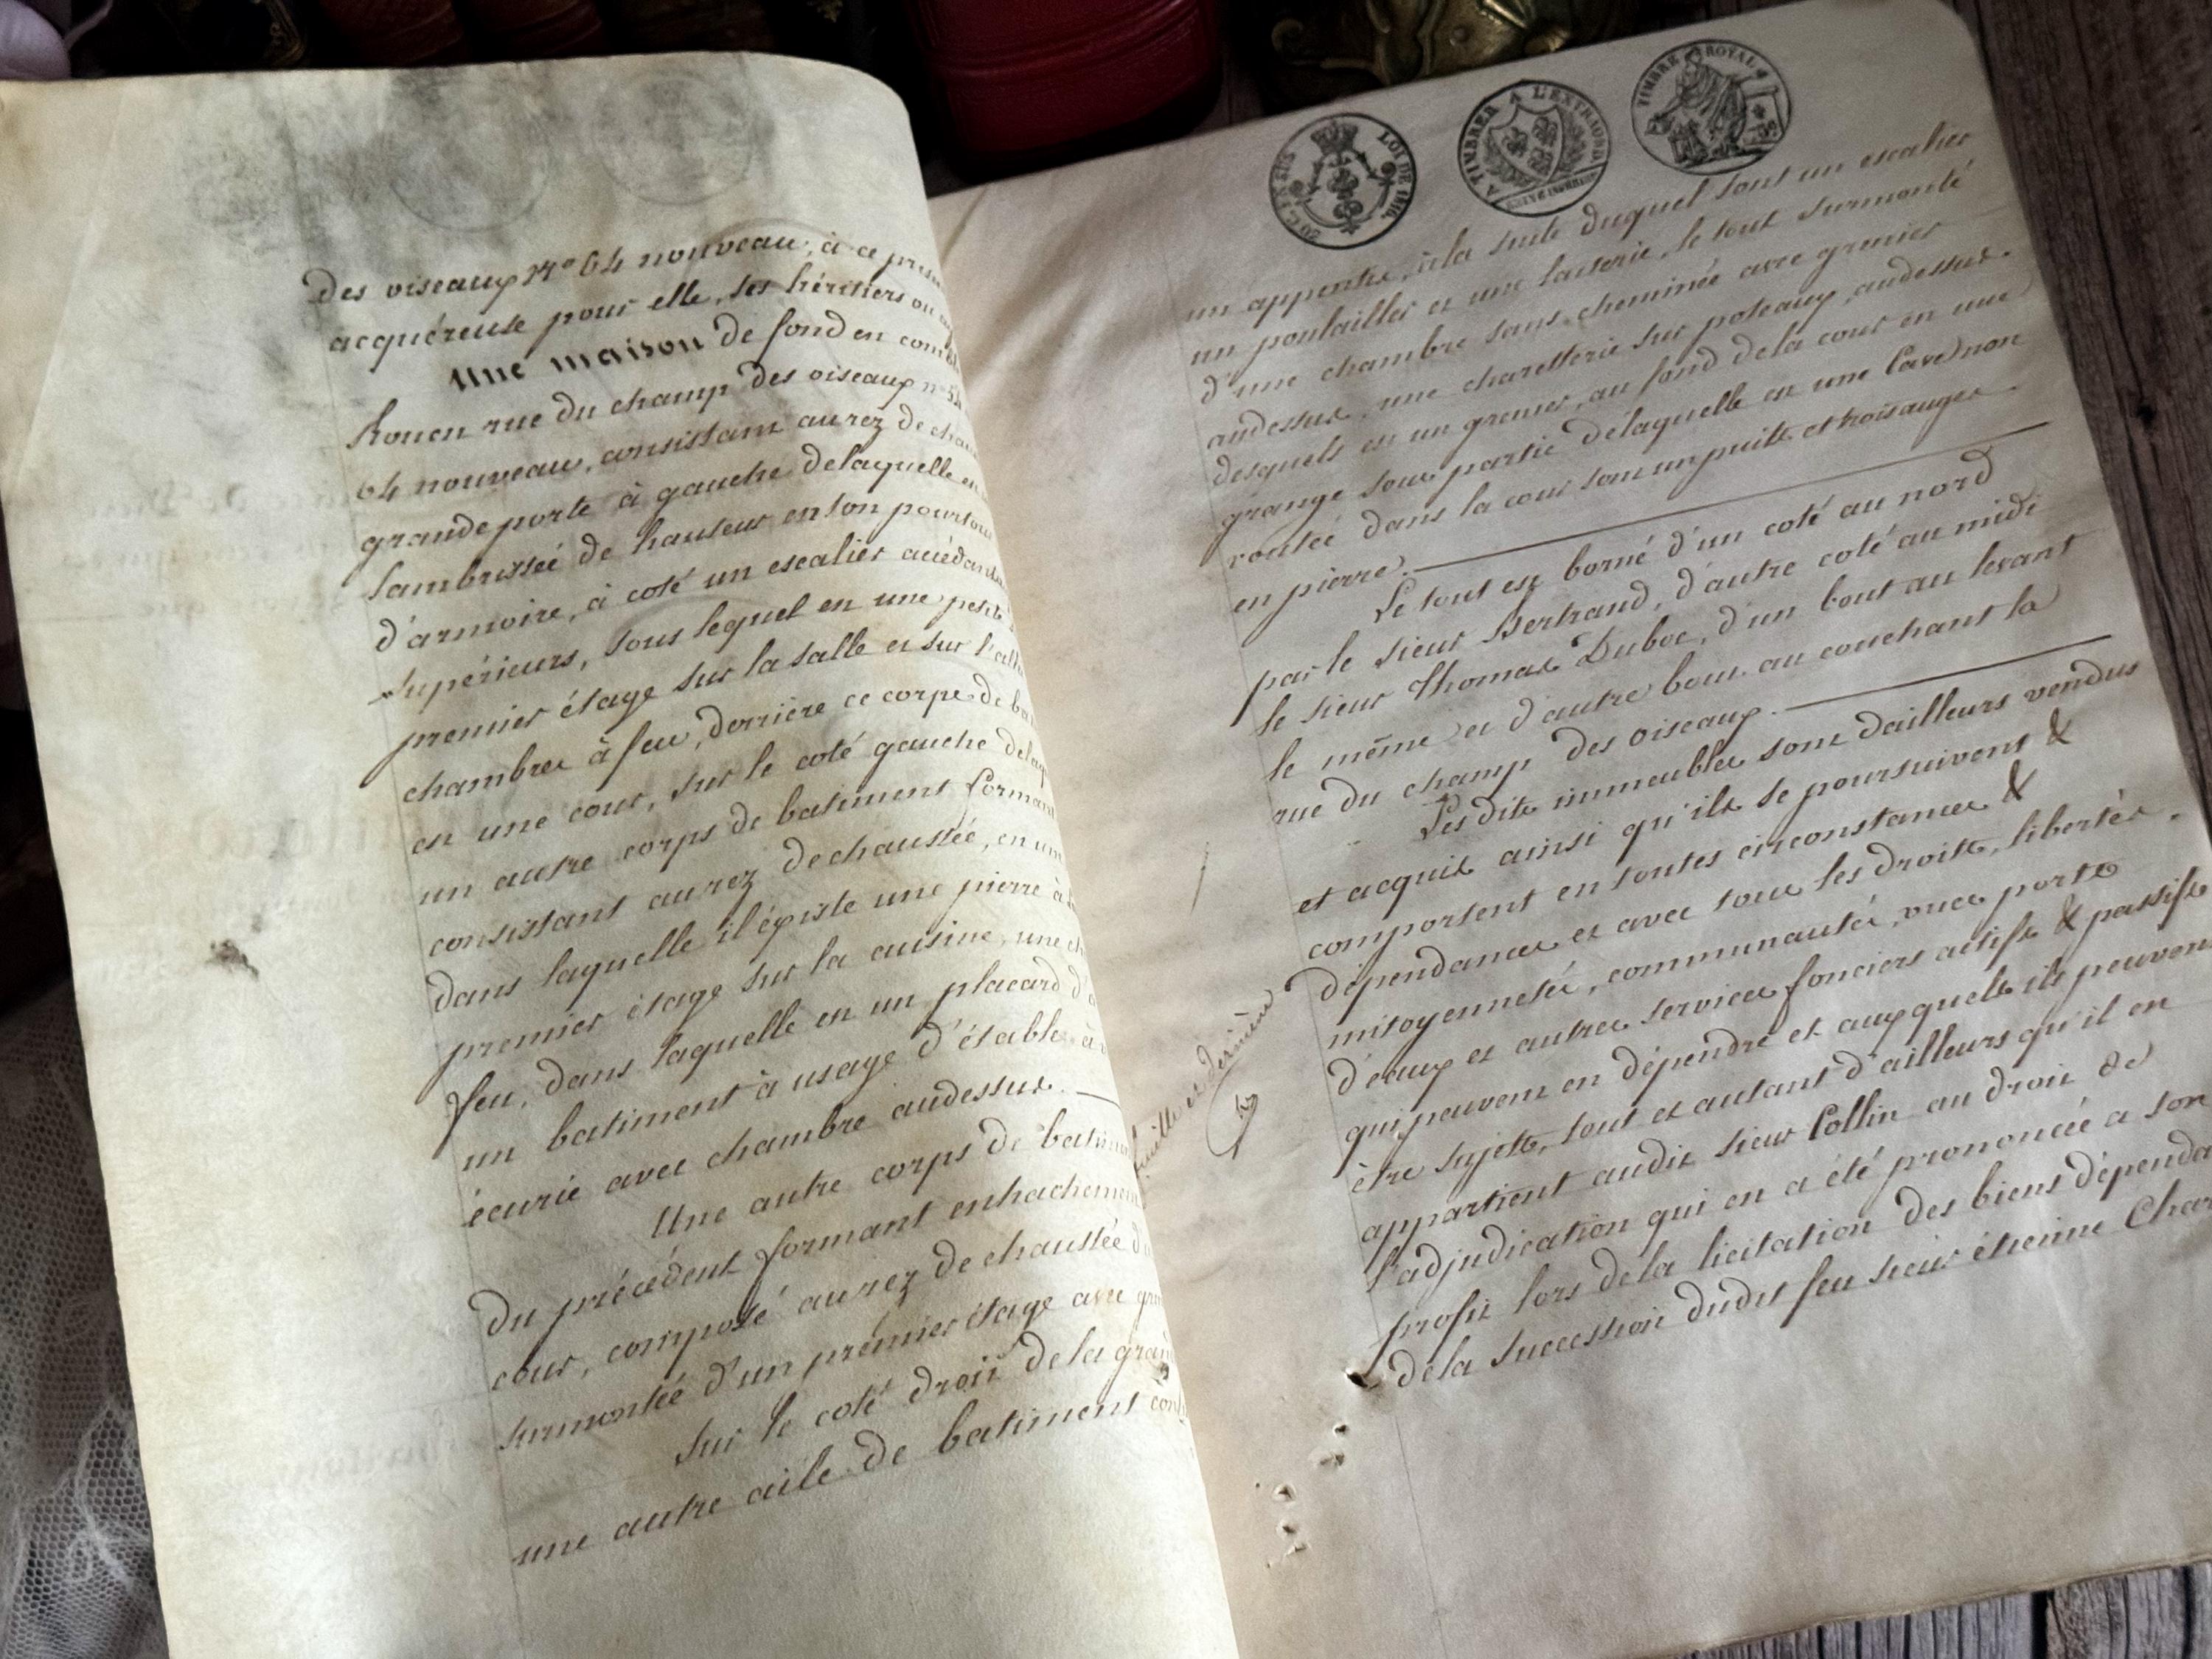 Des oiseaux N° 64 nouveau, à ce
acquéreuse pour elle, ses héritiers ou
Une maison de fond en
Rouen rue du champ des oiseaux n° 54
64 nouveau, consistant au rez de
grande porte à gauche delaquelle
lambrissée de hauteur en son pourtour
d'armoire, à coté un escalier accédant
supérieurs, sous lequel est une petite
premier étage sur la salle et sur
chambres à feu, derrière ce corps de
est une cour, sur le coté gauche
un autre corps de batiment formant
consistant au rez dechaussée, en
dans laquelle il éxiste une pierre à
premier étage sur la cuisine, une
feu, dans laquelle est un placard
un batiment à usage d'étable
écurie avec chambre audessus.
Une autre corps de
Du précédent formant enhachement
cour, composé au rez de chaussée
surmontée d'un premier étage avec
Sur le coté droit dela
une autre aile de batiment
20 C. EN SUS LOI DE 1816.
A TIMBRER A L'EXTRAORD.
TIMBRE ROYAL
un appentis, àla suite duquel sont un escalier
un poulailler et une laiterie, le tout surmonté
d'une chambre sans cheminée avec grenier
audessus, une charetterie sur poteaux, audessus
desquels est un grenier, au fond dela cour est une
grange sous partie delaquelle est une Cave non
voutée dans la cour sont un puits et trois auges
en pierre.
Le tout est borné d'un coté au nord
par le sieur Bertrand, d'autre coté au midi
le sieur Thomas Duboc, d'un bout au levant
le même et d'autre bout au couchant la
rue du champ des oiseaux.
Les dits immeubles sont dailleurs vendus
et acquis ainsi qu'ils se poursuivent &
comportent en toutes circonstances &
dépendances et avec tous les droits, libertés,
mitoyennetés, communautés, vues, porte
d'eaux et autres services fonciers actifs & passifs
qui peuvent en dépendre et auxquels ils peuvent
être sujets, tout et autant d'ailleurs qu'il en
appartient audit sieur Collin au droit de
l'adjudication qui en a été prononcée a son
profit lors dela licitation des biens
dela succession dudit feu sieur étienne
et dernière